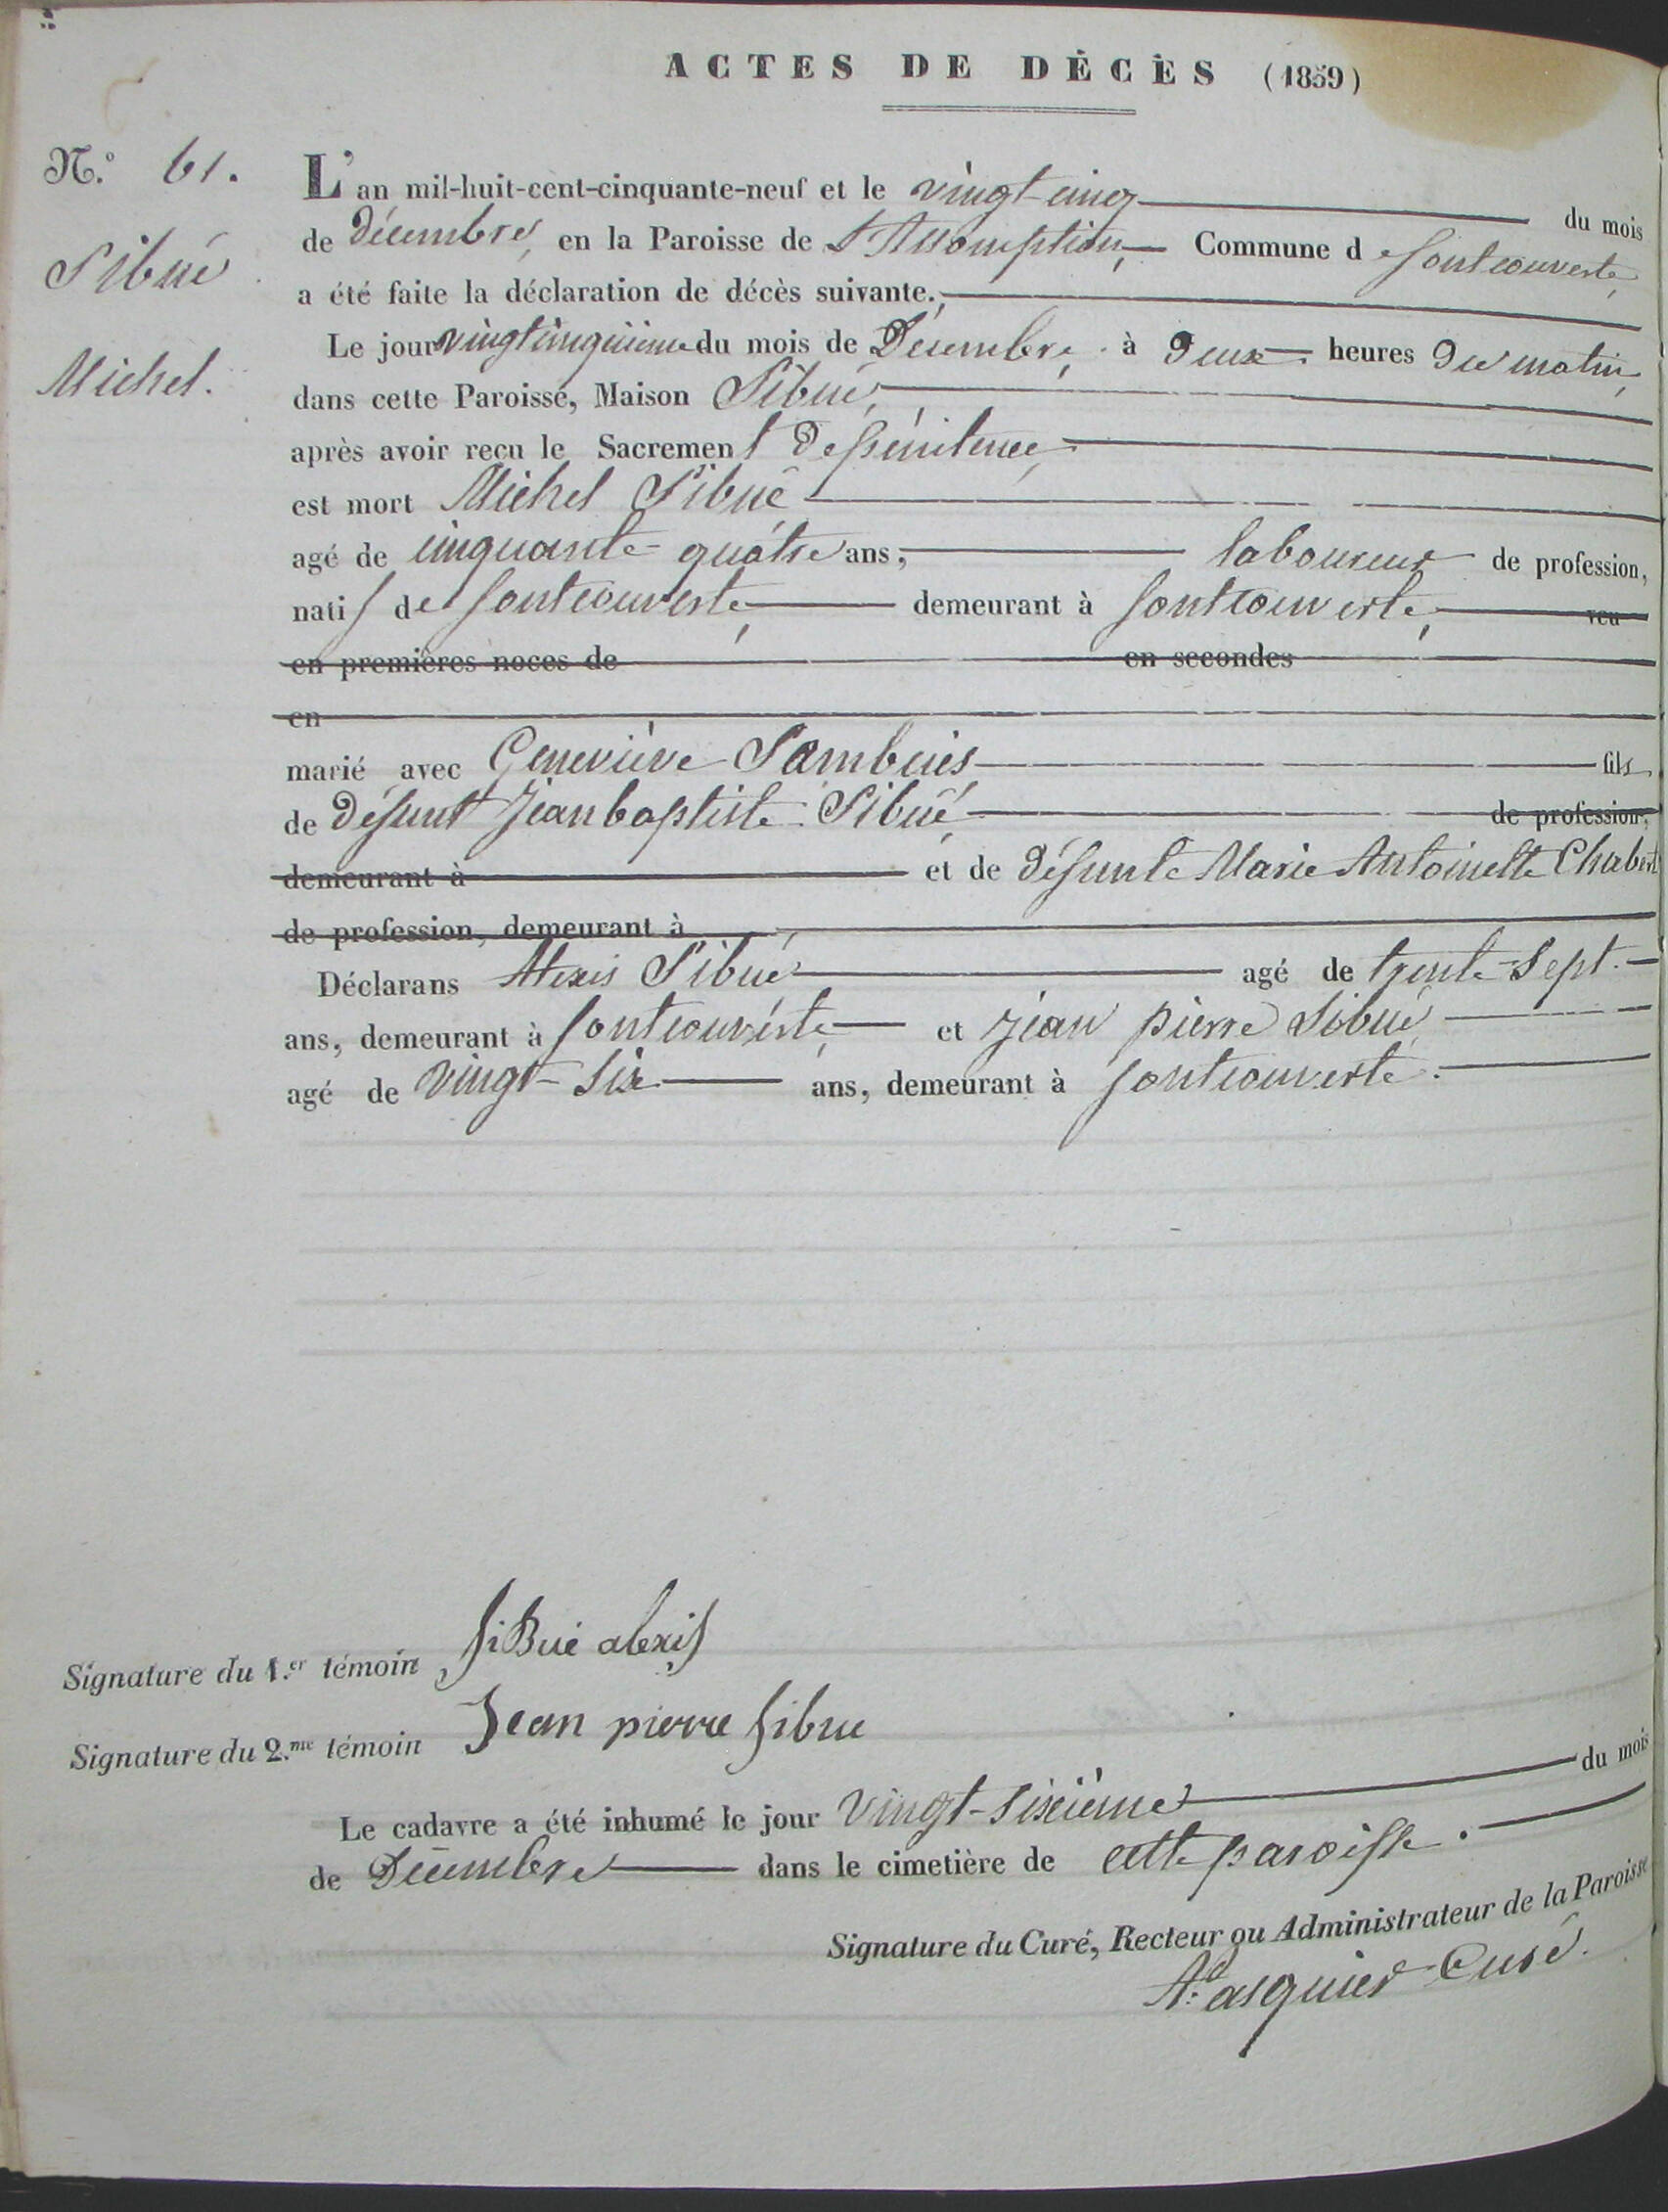 ACTES DE DÉCÈS (1859)
N.º 61.
Sibué
Michel.
L'an mil-huit-cent-cinquante-neuf et le vingt-cinq du mois
de Décembre, en la Paroisse de l'Assomption, Commune de fontcouverte,
a été faite la déclaration de décès suivante.
Le jour vingtcinquième du mois de Décembre, à Deux heures Du matin,
dans cette Paroisse, Maison Sibué,
après avoir reçu le Sacrement De pénitence,
est mort Michel Sibué
agé de cinquante-quatre ans, laboureur de profession,
natif de fontcouverte, demeurant à fontcouverte, veu
en premières noces de en secondes
en
marié avec Geneviève Sambuis fils
de Défunt Jean baptiste Sibué de profession,
demeurant à et de défunte Marie Antoinette Chabert
de profession, demeurant à
Déclarans Alexis Sibué agé de trente-sept.
ans, demeurant à fontcouverte, et Jean pierre Sibué,
agé de vingt-six ans, demeurant à fontcouverte.
Signature du 1.er témoin SiBué alexis
Signature du 2.me témoin Jean pierre Sibue
Le cadavre a été inhumé le jour vingt-sixième du mois
de Décembre dans le cimetière de cette paroisse.
Signature du Curé, Recteur ou Administrateur de la Paroisse
Curé.